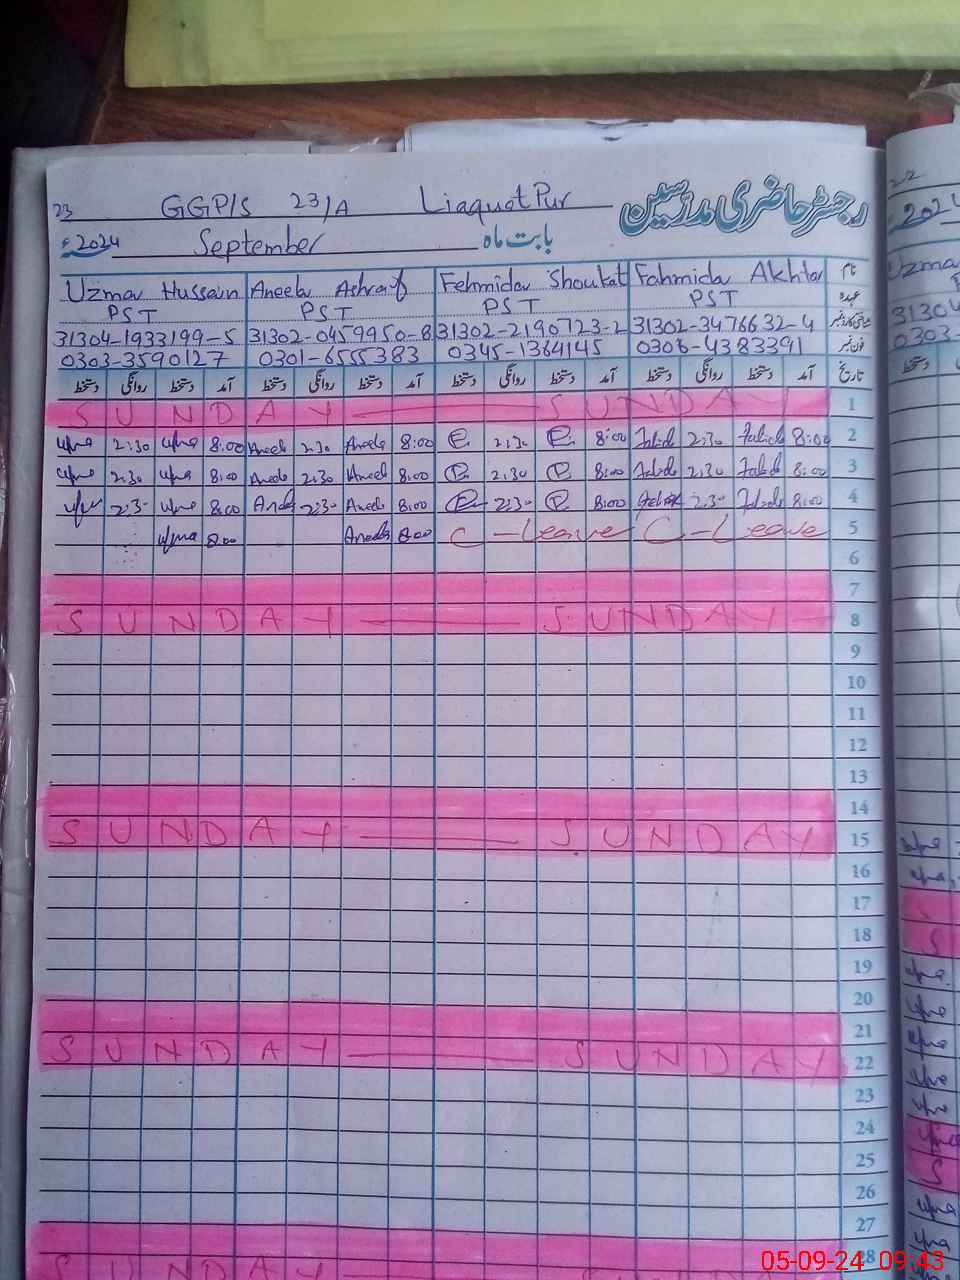 23 GGP/S 23/A Liaquat Pur رجسٹر حاضری مدرسین
2024ء September بابت ماہ
Uzma Hussain Aneela Ashraf Fehmida Shoukat Fahmida Akhtar نام
PST PST PST PST عہدہ
31304-1933199-5 31302-0459950-8 31302-2190723-2 31302-3476632-4 شناختی کارڈ نمبر
0303-3590127 0301-6555383 0345-1364145 0306-4383391 فون نمبر
دستخط روانگی دستخط آمد دستخط روانگی دستخط آمد دستخط روانگی دستخط آمد دستخط روانگی دستخط آمد تاریخ
SUNDAY SUNDAY 1
2:30 8:00 Aneela 2:30 Aneela 8:00 2:30 8:00 2:30 8:00 2
2:30 8:00 Aneela 2:30 Aneela 8:00 2:30 8:00 2:30 8:00 3
2:30 8:00 2:30 Aneela 8:00 2:30 8:00 2:30 8:00 4
8:00 Aneela 8:00 C-Leave C-Leave 5
6
7
SUNDAY SUNDAY 8
9
10
11
12
13
14
SUNDAY SUNDAY 15
16
17
18
19
20
21
SUNDAY SUNDAY 22
23
24
25
26
27
28
05-09-24 09:43